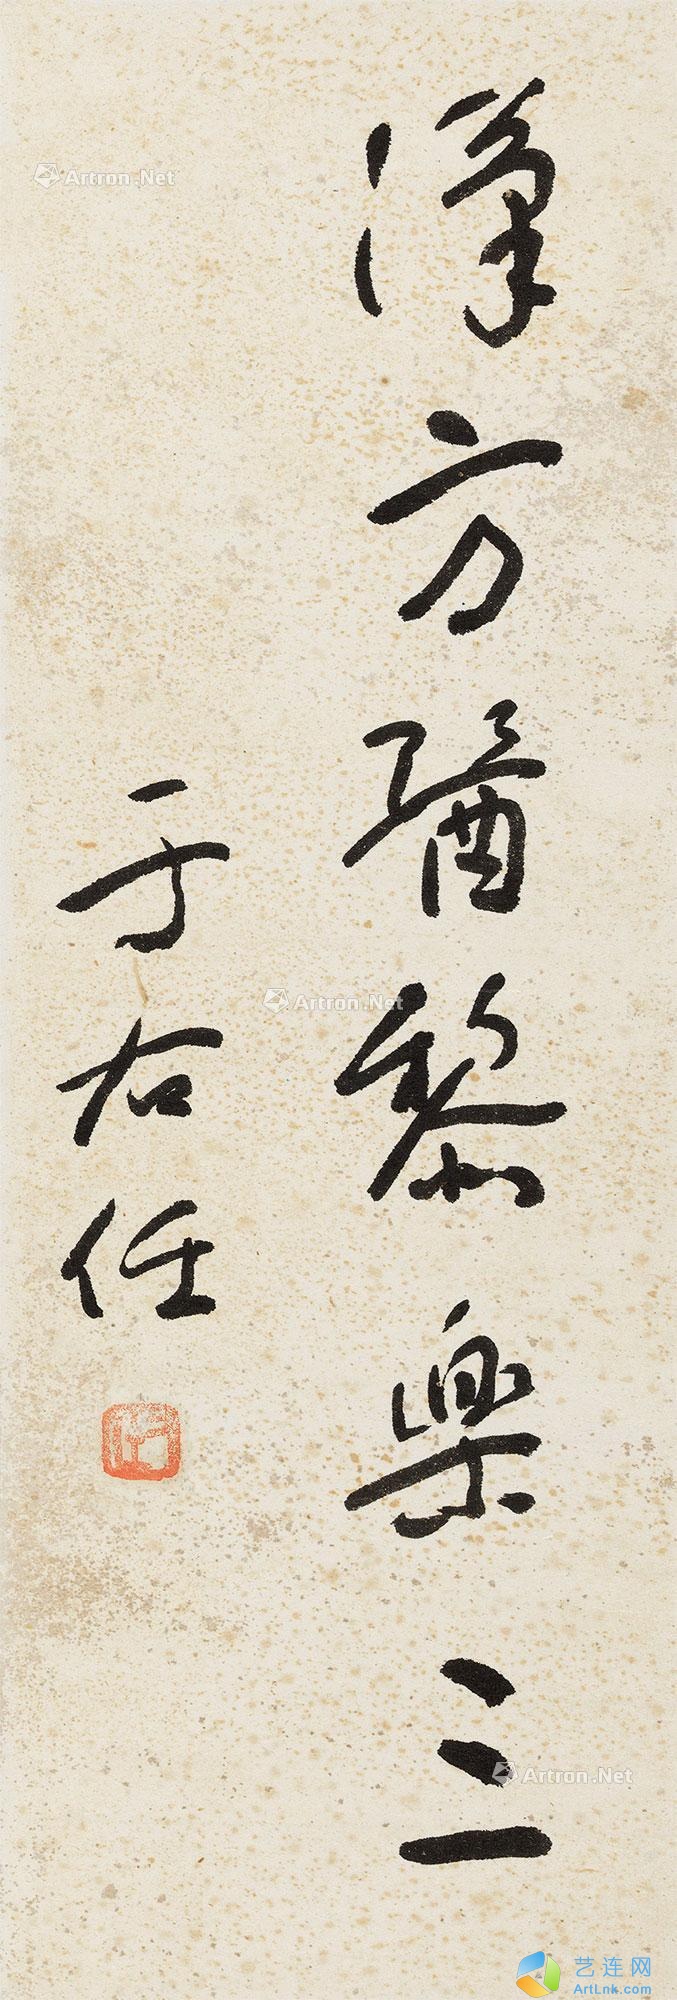 漢方醫黎樂三
于右任
Artron.Net
Artron.Net
Artron.Net
艺连网
ArtLnk.com